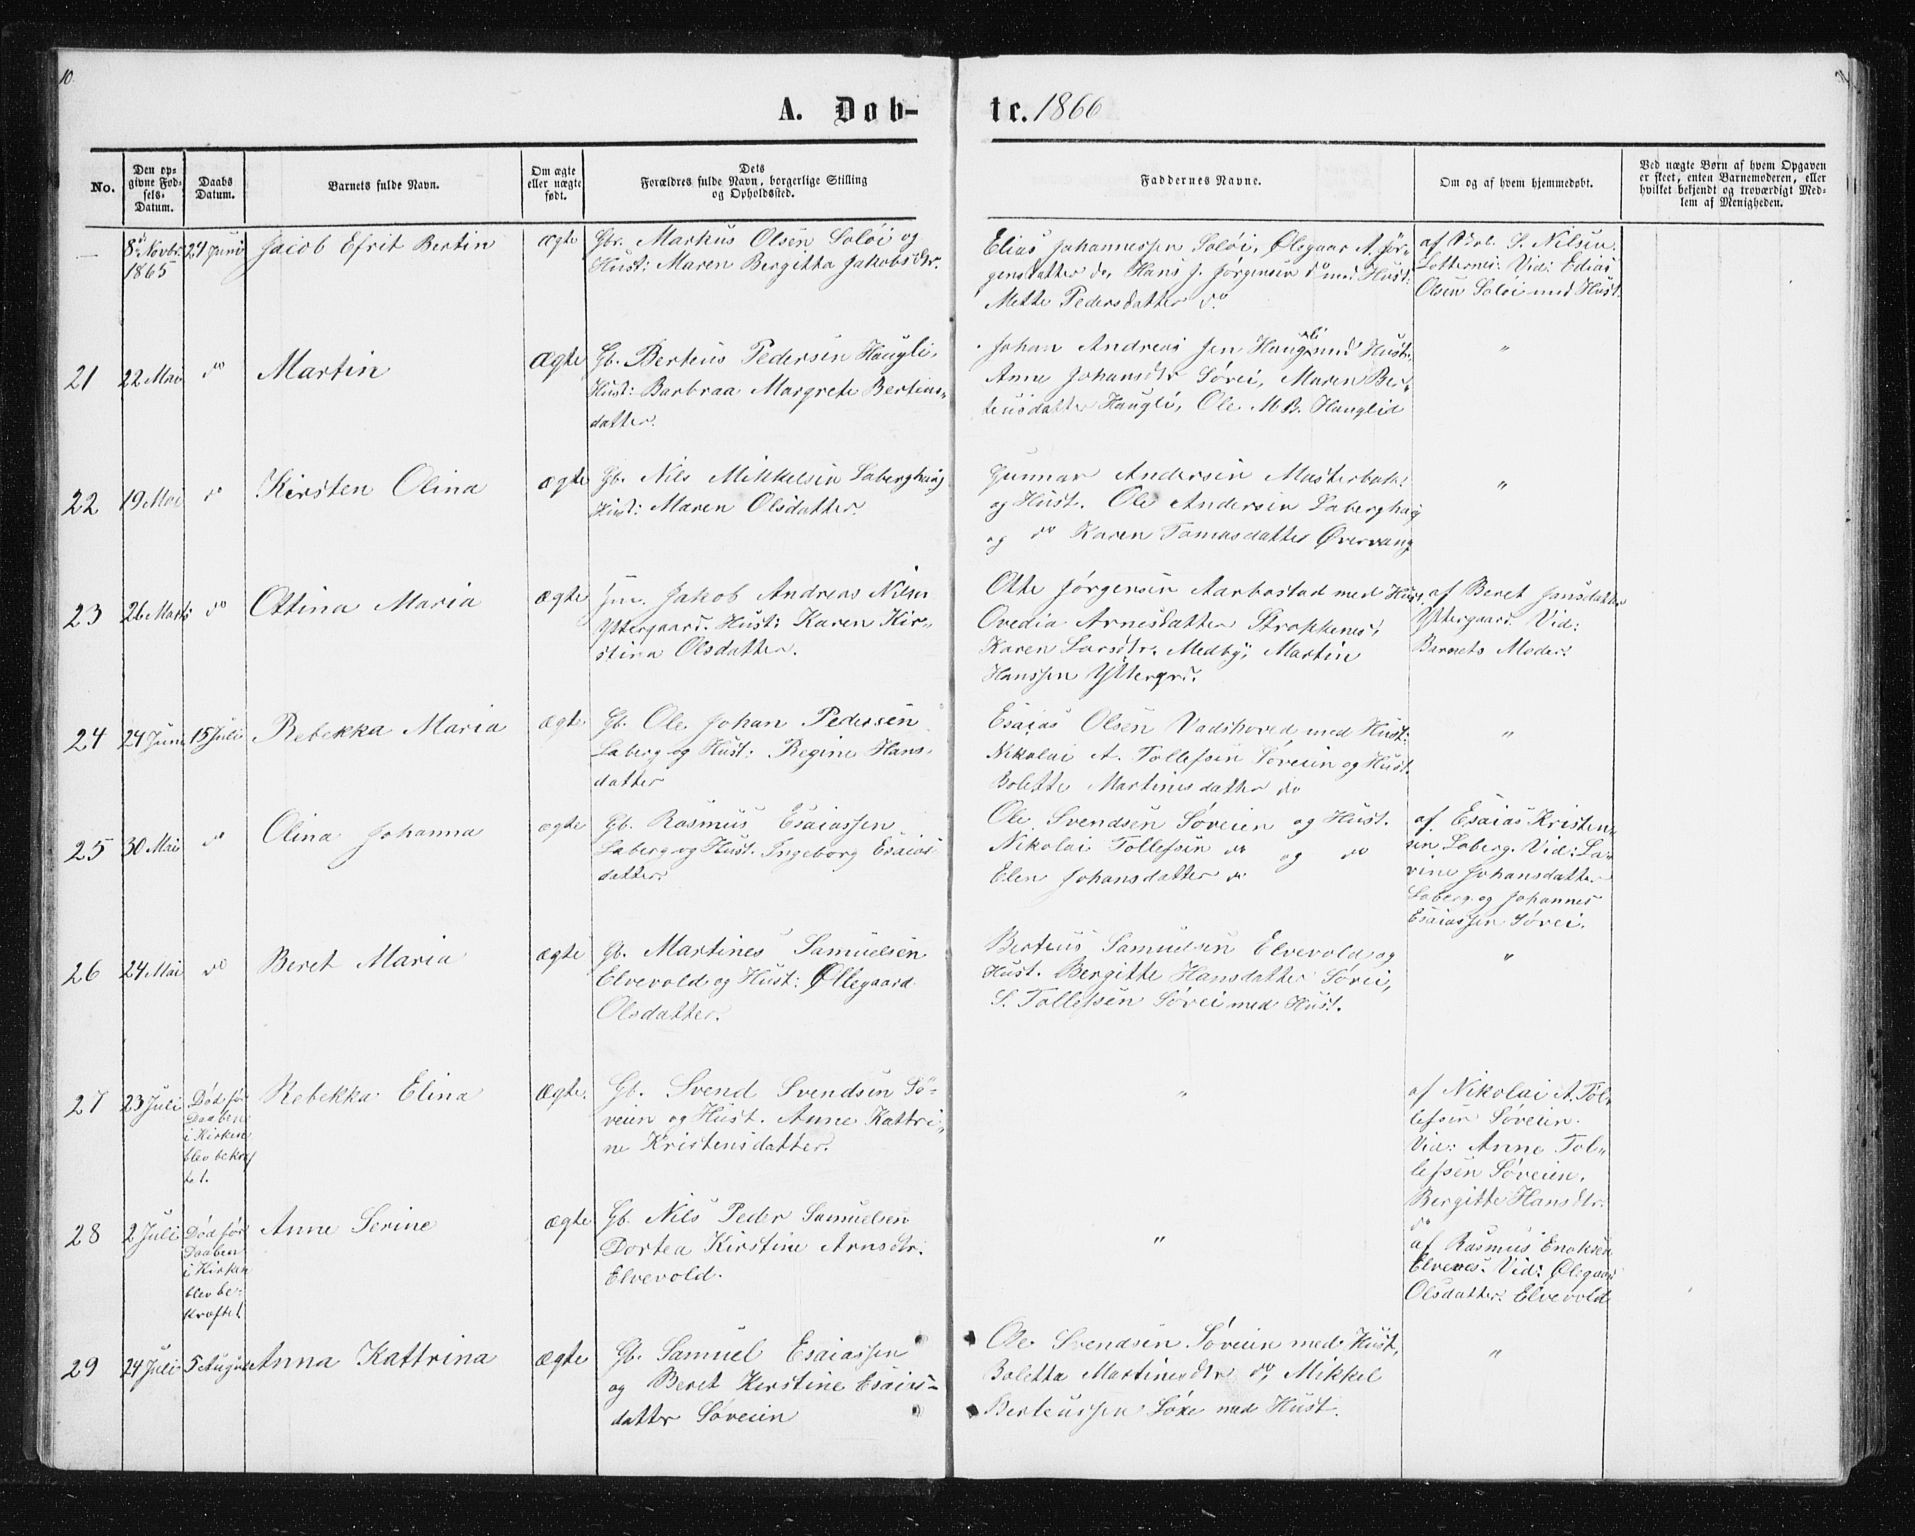 10.
A. Døb-
te. 1866
No.
Den op-
givne Fød-
sels-
Datum.
Daabs
Datum.
Barnets fulde Navn.
Om ægte
eller uægte
født.
Dets
Forældres fulde Navn, borgerlige Stilling
og Opholdssted.
Faddernes Navne.
Om og af hvem hjemmedøbt.
Ved uægte Børn af hvem Opgaven
er skeet, enten Barnemoderen, eller
hvilket bekjendt og troværdigt Med-
lem af Menigheden.
—
8de Novbr.
1865
24 Juni
Jacob Efrit Bertin
ægte
Gbr. Markus Olsen Soløi og
Hust: Maren Bergitta Jakobsdtr.
Elias Johannessen Soløi, Ølegaar A. Jør-
gensdatter do, Hans J. Jørgensen do med Hust:
Mette Pedersdatter do
af S. Nilsen
Vid: Edias
Olsen Soløi med Hust.
21
22 Mai
do
Martin
Ægte
Gb. Berteus Pedersen Haugli,
Hust: Barbraa Margrete Berteus-
datter.
Johan Andreas Jen Haugli med Hust.
Anne Johansdtr Sørei, Maren Ber-
teusdatter Haugli, Ole M B. Hauglid
"
22
19 Mai
do
Kirsten Olina
ægte
Gb. Nils Mikkelsen Laberghaug
Hust: Maren Olsdatter.
Gunnar Andersen Masterbak
og Hust. Ole Andersen Laberghaug
og do Karen Tomasdatter Øvervang
"
23
26 Marts
do
Ottina Maria
ægte
Jakob Andreas Nilsen
Yttergaard. Hust: Karen Kir-
stina Olsdatter.
Otte Jørgensen Aarbostad med Hust,
Ovedia Arnesdatter Strokkenes,
Karen Larsdtr. Medby, Martin
Hanssen Yttergrd.
af Beret Jansdatter
Yttergaard Vid:
Barnets Moder.
24
24 Juni
15 Juli
Rebekka Maria
ægte
Gb. Ole Johan Pedersen
Laberg og Hust: Regine Hans-
datter
Esaias Olsen Vadshoved med Hust:
Nikolai A. Tollefsen Søveien og Hust.
Bolette Martinesdatter do
"
25
30 Mai
do
Olina Johanna
ægte
Gb. Rasmus Esaiassen
Laberg og Hust. Ingeborg Esaias-
datter.
Ole Svendsen Søveien og Hust.
Nikolai Tollefsen do og do
Elen Johansdatter do
af Esaias Kristen-
sen Laberg. Vid: La-
vine Johansdatter
Laberg og Johannes
Esaiassen Sørei.
26
24 Mai
do
Beret Maria
ægte
Gb. Martines Samuelsen
Elvevold og Hust: Øllegaard
Olsdatter.
Berteus Samuelsen Elvevold og
Hust. Bergitte Hansdatter Sørei,
S. Tollefsen Sørei med Hust.
"
27
23 Juli
Død før
Daaben
i Kirken
blev bekræf-
tet.
Rebekka Elina
ægte.
Gb. Svend Svendsen Sø-
veien og Hust. Anne Kattri-
ne Kristensdatter.
"
af Nikolai A. Tol-
lefsen Søveien.
Vid: Anne Tol-
lefsen Søveien,
Bergitte Hansdtr.
do
28
2 Juli
Død før
Daaben
i Kirken
blev be-
kræftet
Anne Serine
ægte
Gb. Nils Peder Samuelsen
Dortea Kirstine Arnsdtr.
Elvevold.
"
af Rasmus Enoksen
Elvenes. Vid: Ølegaar
Olsdatter Elvevold
29
24 Juli
5 August
Anna Kattrina
ægte
Gb. Samuel Esaiassen
og Beret Kirstine Esaias-
datter Søveien
Ole Svendsen Søveien med Hust,
Boletta Martinesdtr do, Mikkel
Berteussen Søre med Hust.
"